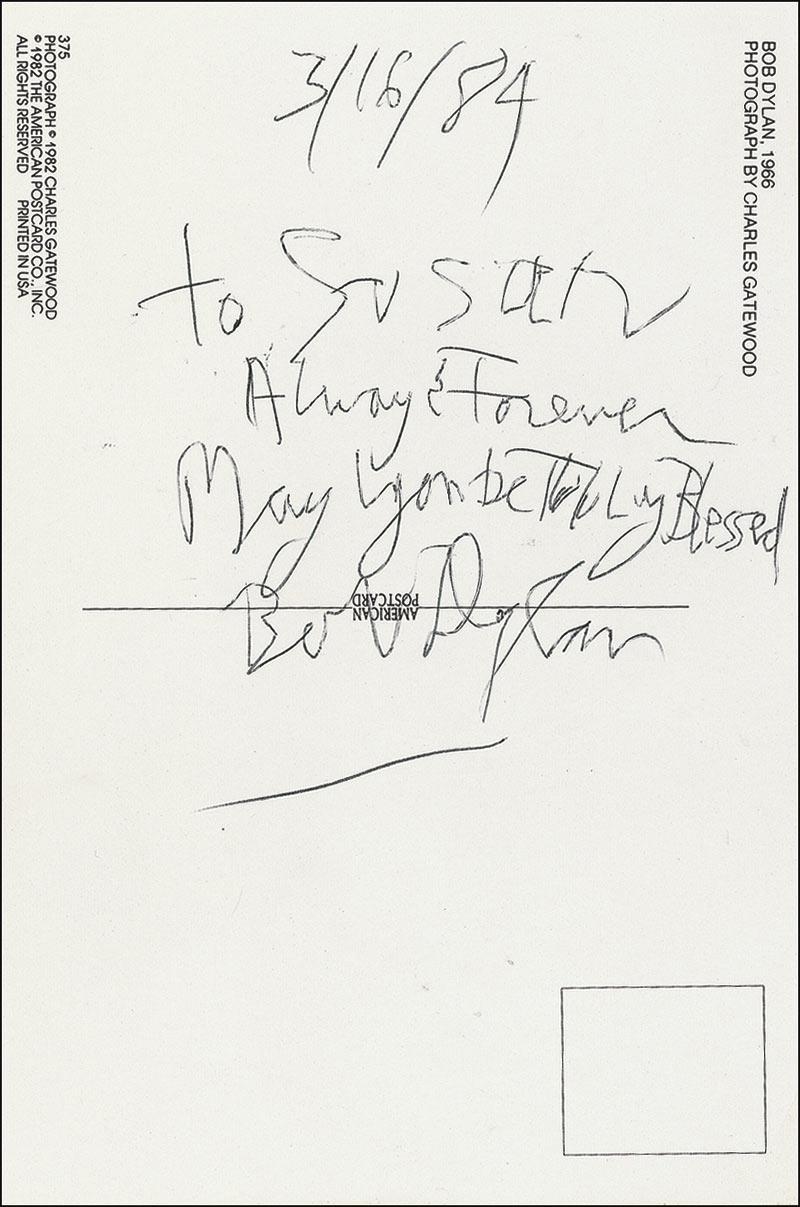 3/16/84
to Susan
Always & Forever
May you be Truly Blessed
Bob Dylan
AMERICAN
POSTCARD
BOB DYLAN, 1966
PHOTOGRAPH BY CHARLES GATEWOOD
375
PHOTOGRAPH © 1982 CHARLES GATEWOOD
© 1982 THE AMERICAN POSTCARD CO., INC.
ALL RIGHTS RESERVED PRINTED IN USA